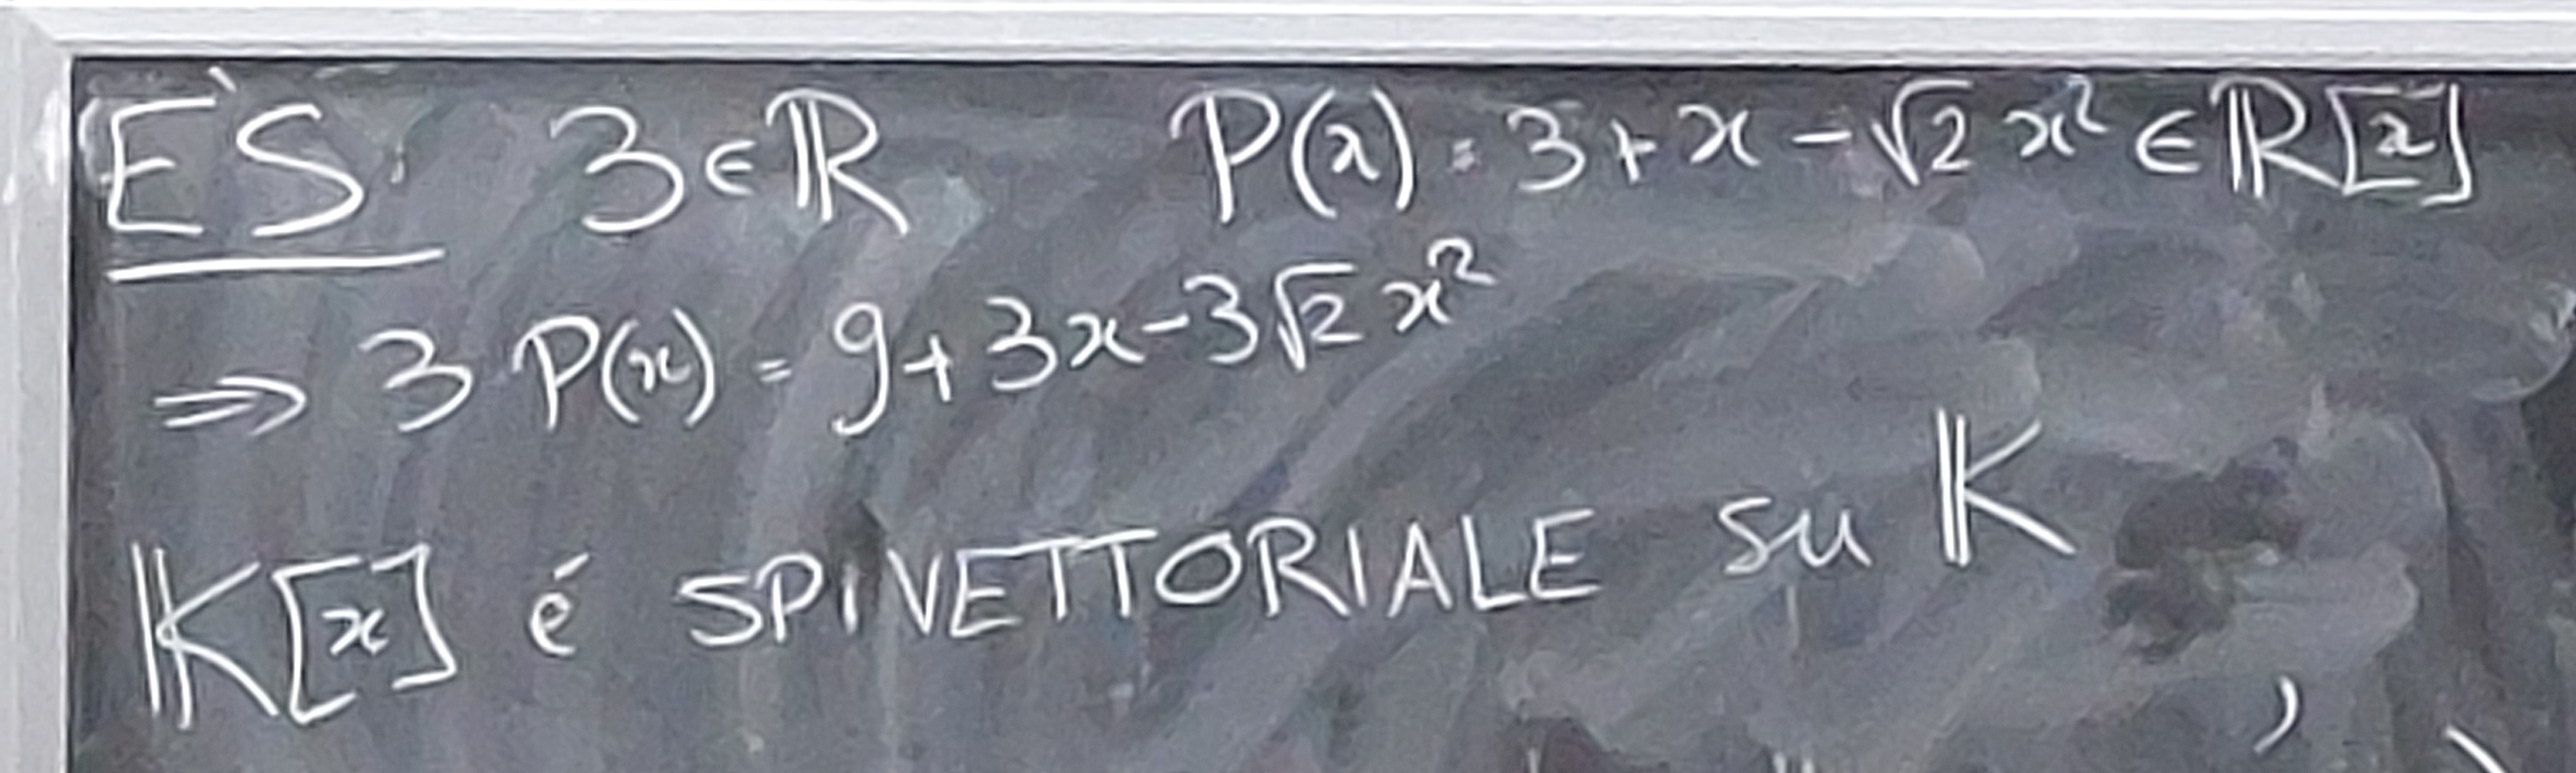 ES. 3 ∈ ℝ P(x) = 3 + x - √2 x² ∈ ℝ[x]
⇒ 3 P(x) = 9 + 3x - 3√2 x²
𝕂[x] é SPIVETTORIALE su 𝕂